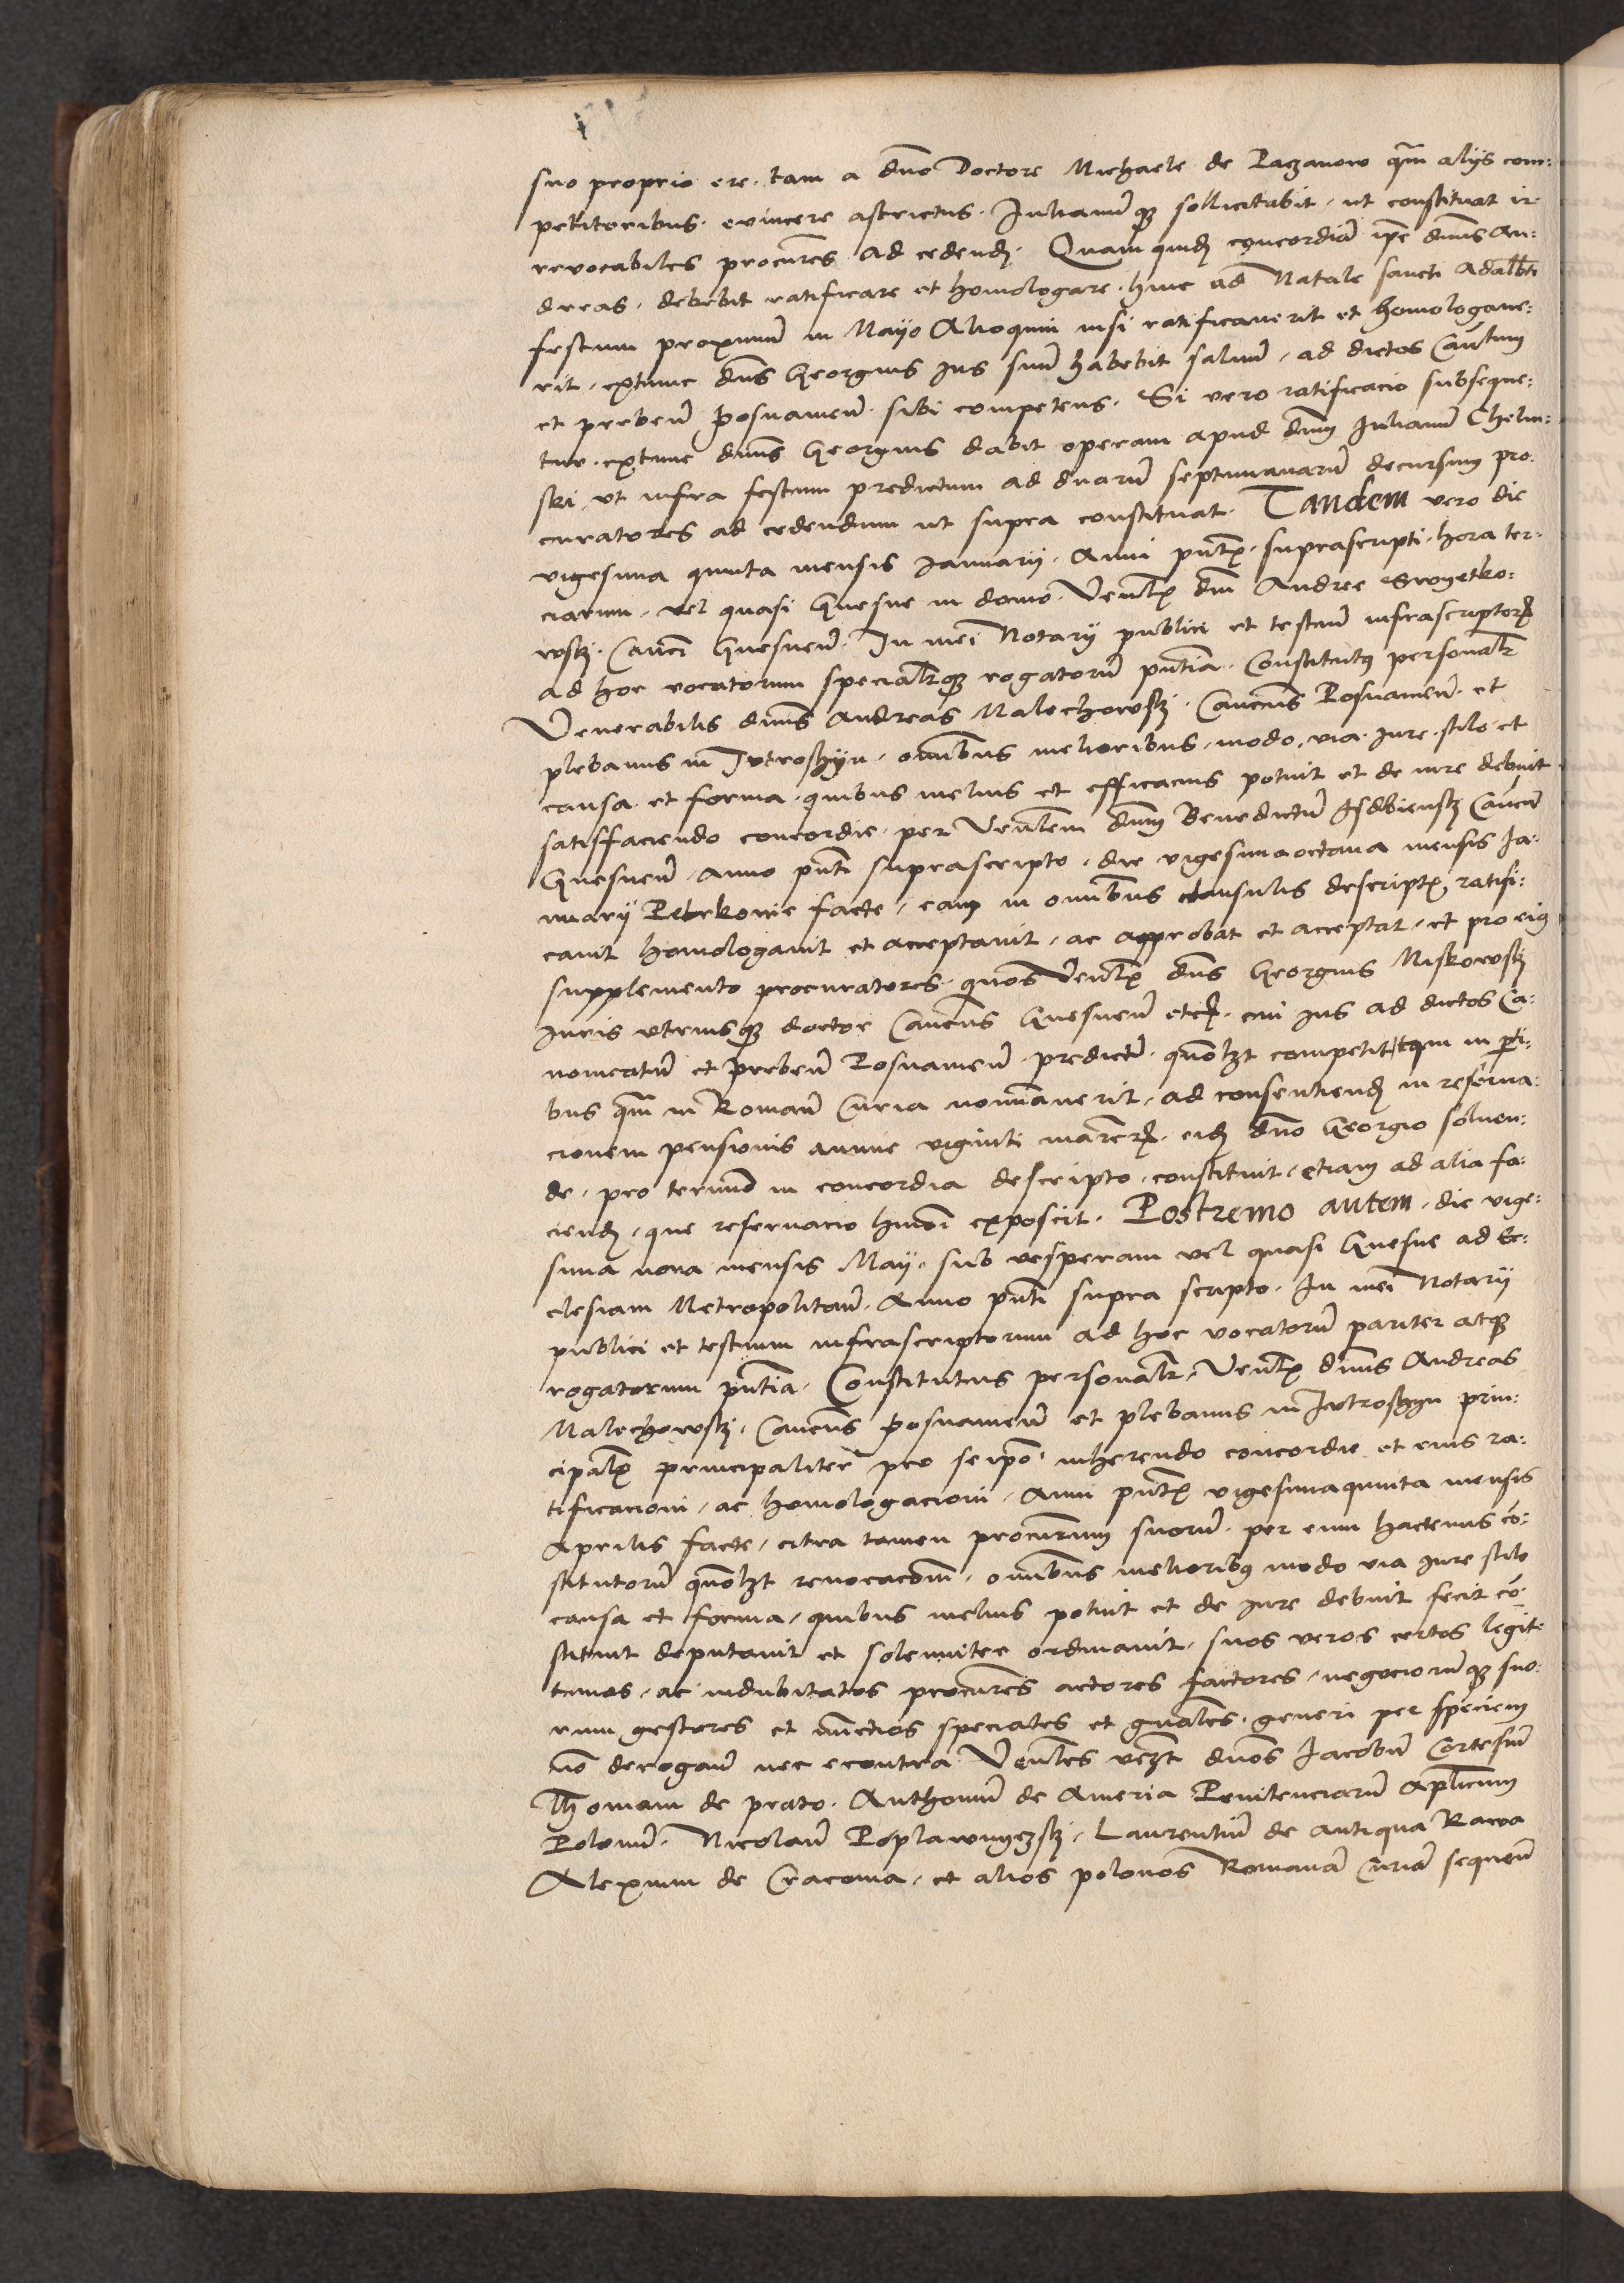 suo proprio ere. tam a dn̄o Doctore Michaele de Paczanow q̄m alijs com:
petitoribus. evincere astrictus. Julianūq₃ sollicitabit, ut constituat ir:
revocabiles procur̄es ad cedend₎. Quam quid₎ concordiā ip̄e dn̄us An:
dreas. debebit ratificare et homologare. hinc ad Natale sancti Adalb̄ti
festum proximum in Mayo Alioquin nisi ratificaverit et homologave:
rit, extunc dn̄s Georgius Jus suū habebit salvum, ad dictos Can̄tum
et prebeñ Posnanieñ. sibi competens. Si vero ratificacio subseque:
tur. extunc dn̄us Georgius dabit operam apud dn̄m Julianū Chelm:
ski, ut infra festum predictum ad duarū septimanarū decursum pro:
curatores ad cedendum ut supra constituat. Tandem vero die
vigesima quinta mensis Januarij. Anni pn̄tꝭ. suprascripti. hora ter:
ciarum, vel quasi Gnesne in domo. Ven̄lꝭ dn̄i Andree Swyetko:
wskj. Can̄ci Gnesneñ. In mei Notarij publici et testiū infrascriptorꝝ
ad hoc vocatorum specialr̄q₃ rogatorū pn̄tia. Constitutꝰ personalr̄
Venerabilis dn̄us Andreas Malechowskj. Can̄cus Posnanieñ. et
plebanus in Jvtroschyn. om̄ibus melioribus, modo, via. Jure. stilo et
causa. et forma. quibus melius et efficacius potuit et de iure debuit
satisffaciendo concordie. per Ven̄lem dn̄m Benedictū Jsdbienskj Can̄cū
Gnesneñ. Anno pn̄ti suprascripto. die vigesimaoctava mensis Ja:
nuarij Petrkovie facte, eam in om̄ibus clausulis descriptꝭ, ratifi:
cavit homologavit et acceptavit, ac approbat et acceptat, et pro eiꝰ
supplemento procuratores. quos Ven̄lꝭ dn̄s Georgius Miskowskj
Juris utriusq₃ doctor Can̄cus Gnesneñ etcꝭ. cui ius ad dictos Ca:
nonicatū et prebeñ Posnanieñ. predictꝭ. quōlꝫt competit, tam in pti:
bus q̄m in Romañ Curia nominaverit, ad consentiend₎ in reserva:
cionem pensionis annue viginti marcꝝ. eid₎ dn̄o Georgio solven:
de, pro termio in concordia descripto, constituit, etiam ad alia fa:
ciend₎, que reservacio hmōi exposcit. Postremo autem, die vige:
sima nona mensis Maij, sub vesperam vel quasi Gnesne ad Ec:
clesiam Metropolitañ. Anno pn̄ti supra scripto. In mei Notarij
publici et testium infrascriptorum ad hoc vocatorū pariter atq₃
rogatorum pn̄tia. Constitutus personalr̄. Ven̄lꝭ dn̄us Andreas
Malechowskj. Can̄cus Posnanieñ et plebanus in Jvtroschyn prin:
cipalꝭ principaliter pro se ip̄o. inherendo concordie et eius ra:
tificacioni, ac homologacioni, Anni pn̄tꝭ vigesimaquinta mensis
Aprilis facte, citra tamen procur̄um suorū. per eum hactenus cō:
stitutorū quōlꝫt revocacōm, om̄ibus melioribꝰ modo via iure stilo
causa et forma, quibus melius potuit et de iure debuit fecit cō:
stituit deputavit et solenniter ordinavit, suos veros certos legit:
timos, ac indubitatos procur̄es actores factores, negociorūq₃ suo:
rum gestores et nuncios speciales et gn̄ales. generi per speciem
nō derogañ nec econtra Ven̄les vꝫt dn̄os Jacobū Cortesiū
Thomam de prato. Anthoniū de Ameria Penitenciarū Aplicum
Polonū. Nicolaū Poplawnyczskj, Laurentiū de antiqua Rawa
Alexium de Cracovia, et alios polonos Romanā Curiā sequeñ